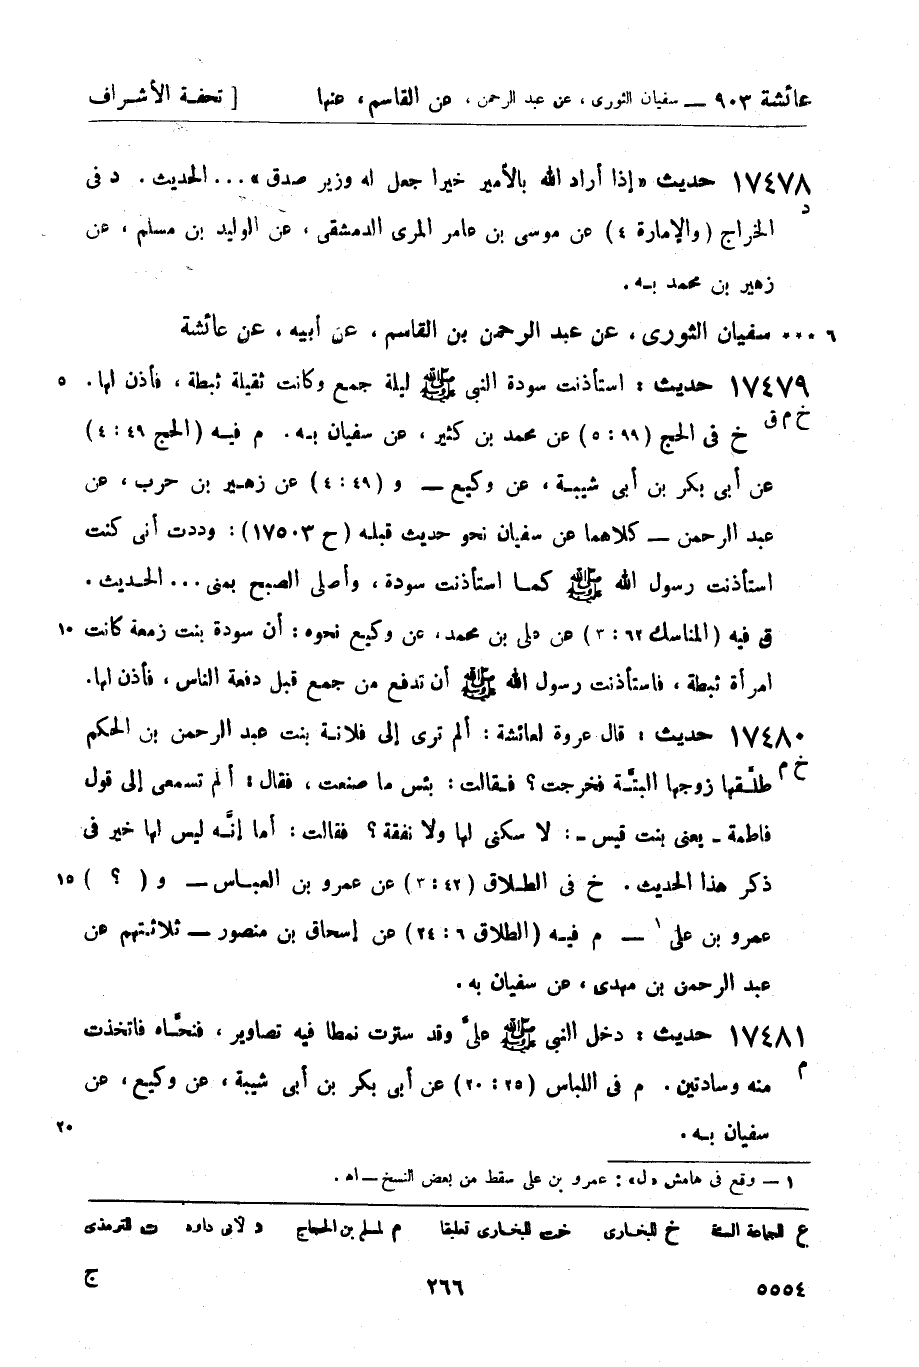 عائشة ٩٠٣ — سفيان الثورى ، عن عبد الرحمن ، عن القاسم ، عنها [ تحفة الأشراف
١٧٤٧٨ حديث « إذا أراد الله بالأمير خيرا جعل له وزير صدق » ... الحديث . د فى
د
الخراج ( والإمارة ٤ ) عن موسى بن عامر المرى الدمشقى ، عن الوليد بن مسلم ، عن
زهير بن محمد بـه .
٦ ... سفيان الثورى ، عن عبد الرحمن بن القاسم ، عن أبيه ، عن عائشة
١٧٤٧٩ حديث : استأذنت سودة النبى ﷺ ليلة جمع وكانت ثقيلة ثبطة ، فأذن لها . ٥
خ م ق
خ فى الحج ( ٩٩ : ٥ ) عن محمد بن كثير ، عن سفيان بـه . م فيـه ( الحج ٤٩ : ٤ )
عن أبى بكر بن أبى شيبـة ، عن وكيع — و ( ٤٩ : ٤ ) عن زهـير بن حرب ، عن
عبد الرحمن — كلاهما عن سفيان نحو حديث قبله ( ح ١٧٥٠٣ ) : وددت أنى كنت
استأذنت رسول الله ﷺ كمـا استأذنت سودة ، وأصلى الصبح بمنى ... الحـديث .
ق فيه ( المناسك ٦٢ : ٣ ) عن على بن محمد ، عن وكيع نحوه : أن سودة بنت زمعة كانت ١٠
امرأة ثبطة ، فاستأذنت رسول الله ﷺ أن تدفع من جمع قبل دفعة الناس ، فأذن لها .
١٧٤٨٠ حديث : قال عروة لعائشة : ألم ترى إلى فلانـة بنت عبد الرحمن بن الحكم
خ م
طلَّـقها زوجها البتَّـة فخرجت ؟ فـقالت : بئس ما صنعت ، فقال : ألم تسمعى إلى قول
فاطمة ـ يعنى بنت قيس ـ : لا سكنى لها ولا نفقة ؟ فقالت : أما إنَّـه ليس لها خير فى
ذكر هذا الحديث . خ فى الطـلاق ( ٤٢ : ٣ ) عن عمرو بن العبـاس — و ( ؟ ) ١٥
عمرو بن على ١ — م فيـه ( الطلاق ٦ : ٢٤ ) عن إسحاق بن منصور — ثلاثـتهم عن
عبد الرحمن بن مهدى ، عن سفيان به .
١٧٤٨١ حديث : دخل النبى ﷺ علىَّ وقد سترت نمطا فيه تصاوير ، فنحَّـاه فاتخذت
م
منه وسادتين . م فى اللباس ( ٢٥ : ٢٠ ) عن أبى بكر بن أبى شيبة ، عن وكيع ، عن
سفيان بـه . ٢٠
١ — وقع فى هامش « ل » : عمرو بن على سقط من بعض النسخ — اه .
ع للجماعة الستة خ للبخارى خت للبخارى تعليقا م لمسلم بن الحجاج د لأبى داود ت للترمذى
٥٥٥٤ ٢٦٦ ج